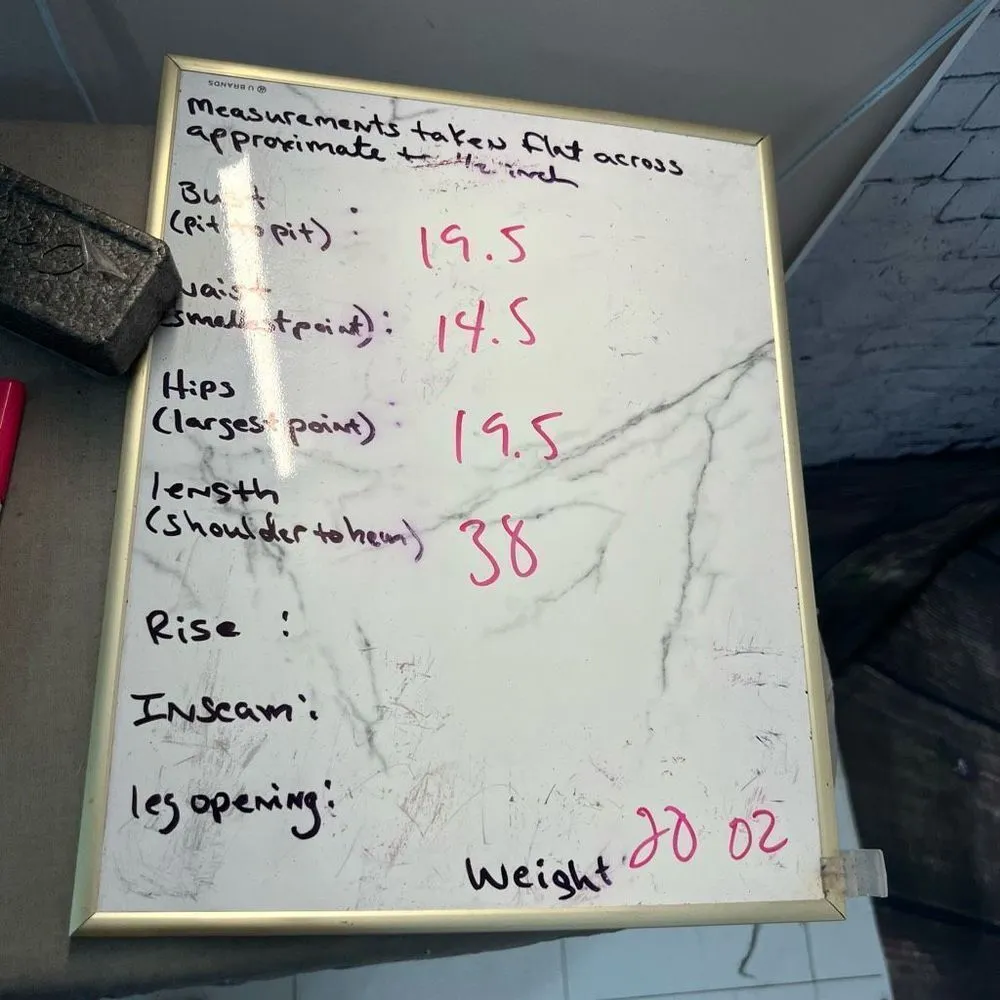 U BRANDS
Measurements taken flat across
approximate to 1/2 inch
Bust
(pit to pit) : 19.5
waist
(smallest point): 14.5
Hips
(largest point) : 19.5
length
(shoulder to hem) 38
Rise :
Inseam:
leg opening:
Weight: 20 oz